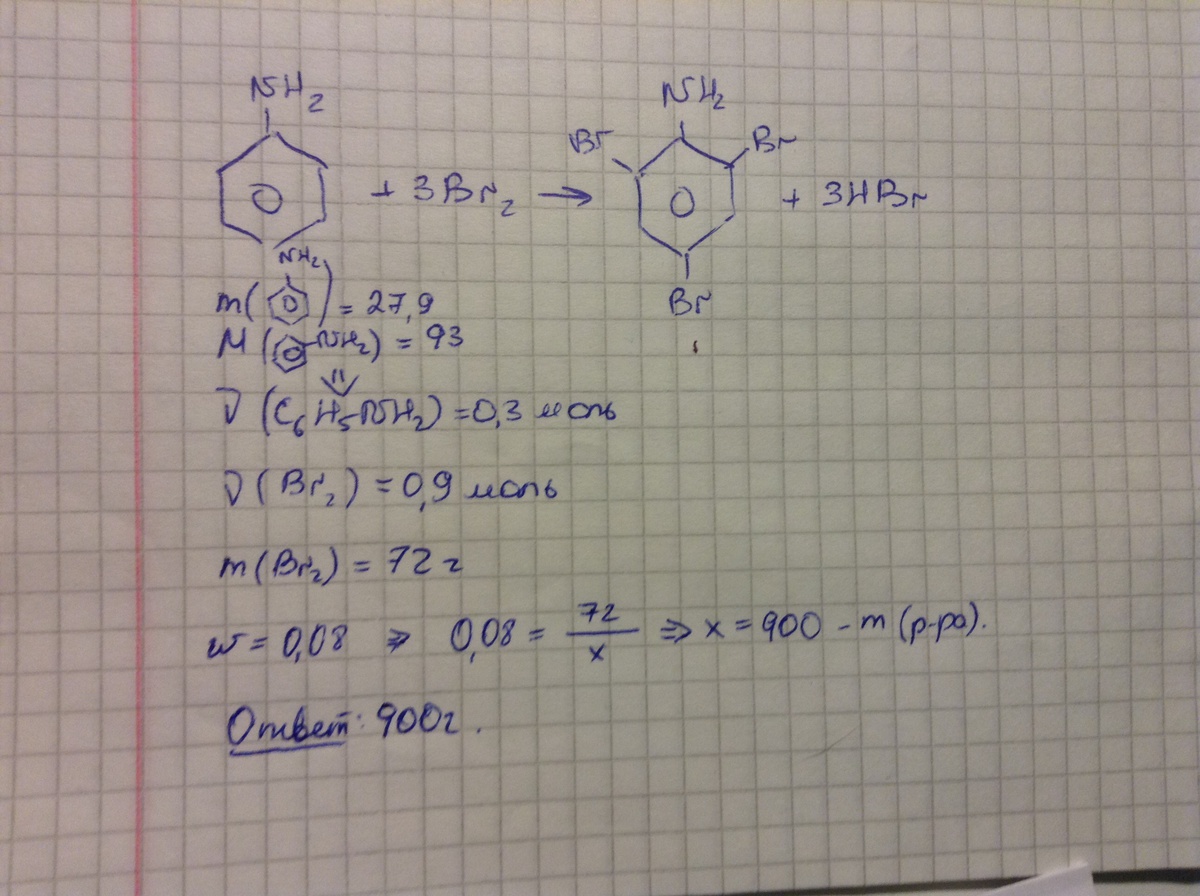 NH2 NH2
Br Br
+ 3Br2 → + 3HBr
Br
m(NH2) = 27,9
M(-NH2) = 93
⇓
ν(C6H5-NH2) = 0,3 моль
ν(Br2) = 0,9 моль
m(Br2) = 72 г
w = 0,08 ⇒ 0,08 = 72/x ⇒ x = 900 - m (р-ра).
Ответ: 900г.